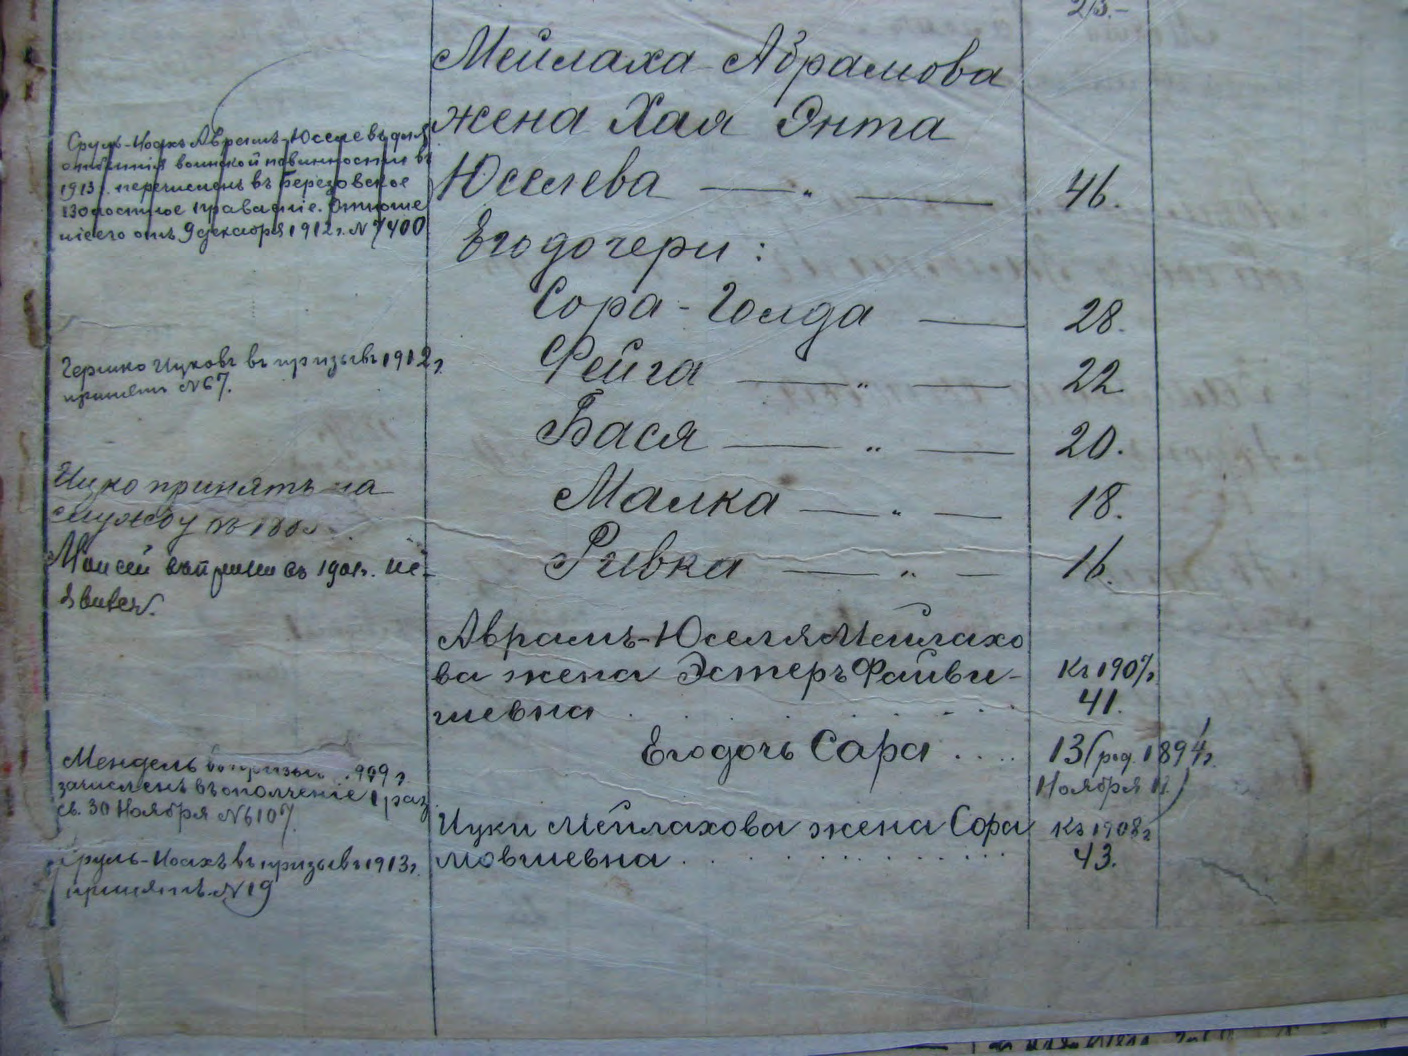 213.-
Мейлаха Абрамова
жена Хая Энта
Юселева — „ — 46.
Его дочери:
Сора-Голда — 28.
Фейга — „ — 22.
Бася — „ — 20.
Малка — „ — 18.
Ривка — „ — 16.
Аврамъ-Юселя Мейлахо
ва жена Эстеръ Файви-
шевна . . . . . Къ 1907г.
41.
Его дочь Сара . . . . 13 (род. 1894г.
Ноября 11)
Ицки Мейлахова жена Сора
Мовшевна . . . . . Къ 1908г
43.
Сруль-Иоахъ Аврамъ-Юселевъ для
воинской повинности въ
1913г. перечисленъ въ Березовское
волостное правленіе. Отноше
ніе его отъ 9 декабря 1912г. № 7400
Гершко Ицковъ въ призывъ 1912г.
принятъ № 67.
Ицко принятъ на
службу въ
Моисей въ 1901г. не
явился.
Мендель въ призывъ 1909г.
зачисленъ въ ополченіе 1 раз
св. 30 Ноября № 6107
Сруль-Иоахъ въ призывъ 1913г.
принятъ № 19